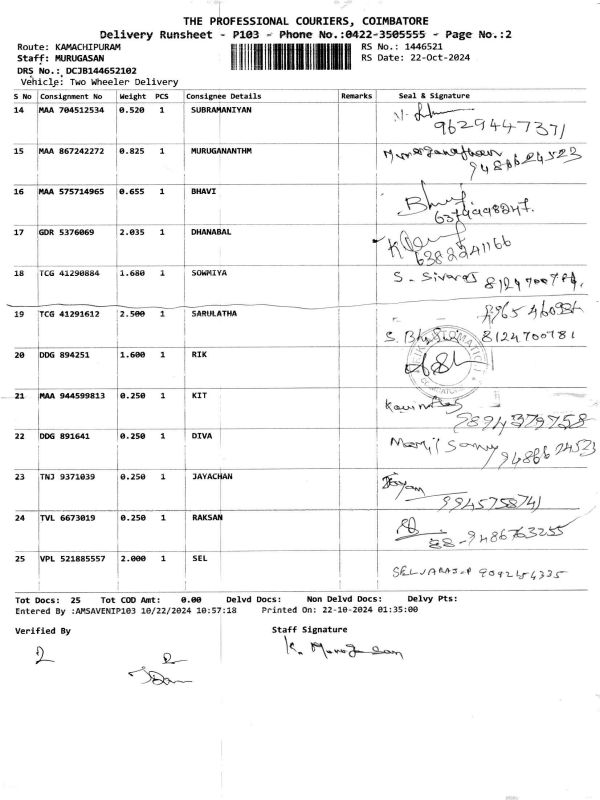 THE PROFESSIONAL COURIERS, COIMBATORE
Delivery Runsheet - P103 - Phone No.:0422-3505555 - Page No.:2
Route: KAMACHIPURAM RS No.: 1446521
Staff: MURUGASAN RS Date: 22-Oct-2024
DRS No.: DCJB144652102
Vehicle: Two Wheeler Delivery
S No Consignment No Weight PCS Consignee Details Remarks Seal & Signature
14 MAA 704512534 0.520 1 SUBRAMANIYAN
9629447371
15 MAA 867242272 0.825 1 MURUGANANTHM
9486624523
16 MAA 575714965 0.655 1 BHAVI
17 GDR 5376069 2.035 1 DHANABAL
6382241166
18 TCG 41290884 1.680 1 SOWMIYA S. Sivaraj
19 TCG 41291612 2.500 1 SARULATHA
8124700781
20 DDG 894251 1.600 1 RIK
21 MAA 944599813 0.250 1 KIT
9894379758
22 DDG 891641 0.250 1 DIVA
9486624523
23 TNJ 9371039 0.250 1 JAYACHAN
9945758741
24 TVL 6673019 0.250 1 RAKSAN
9486763255
25 VPL 521885557 2.000 1 SEL SELVARAJ.P 9092154335
Tot Docs: 25 Tot COD Amt: 0.00 Delvd Docs: Non Delvd Docs: Delvy Pts:
Entered By :AMSAVENIP103 10/22/2024 10:57:18 Printed On: 22-10-2024 01:35:00
Verified By Staff Signature
K. Murugesan